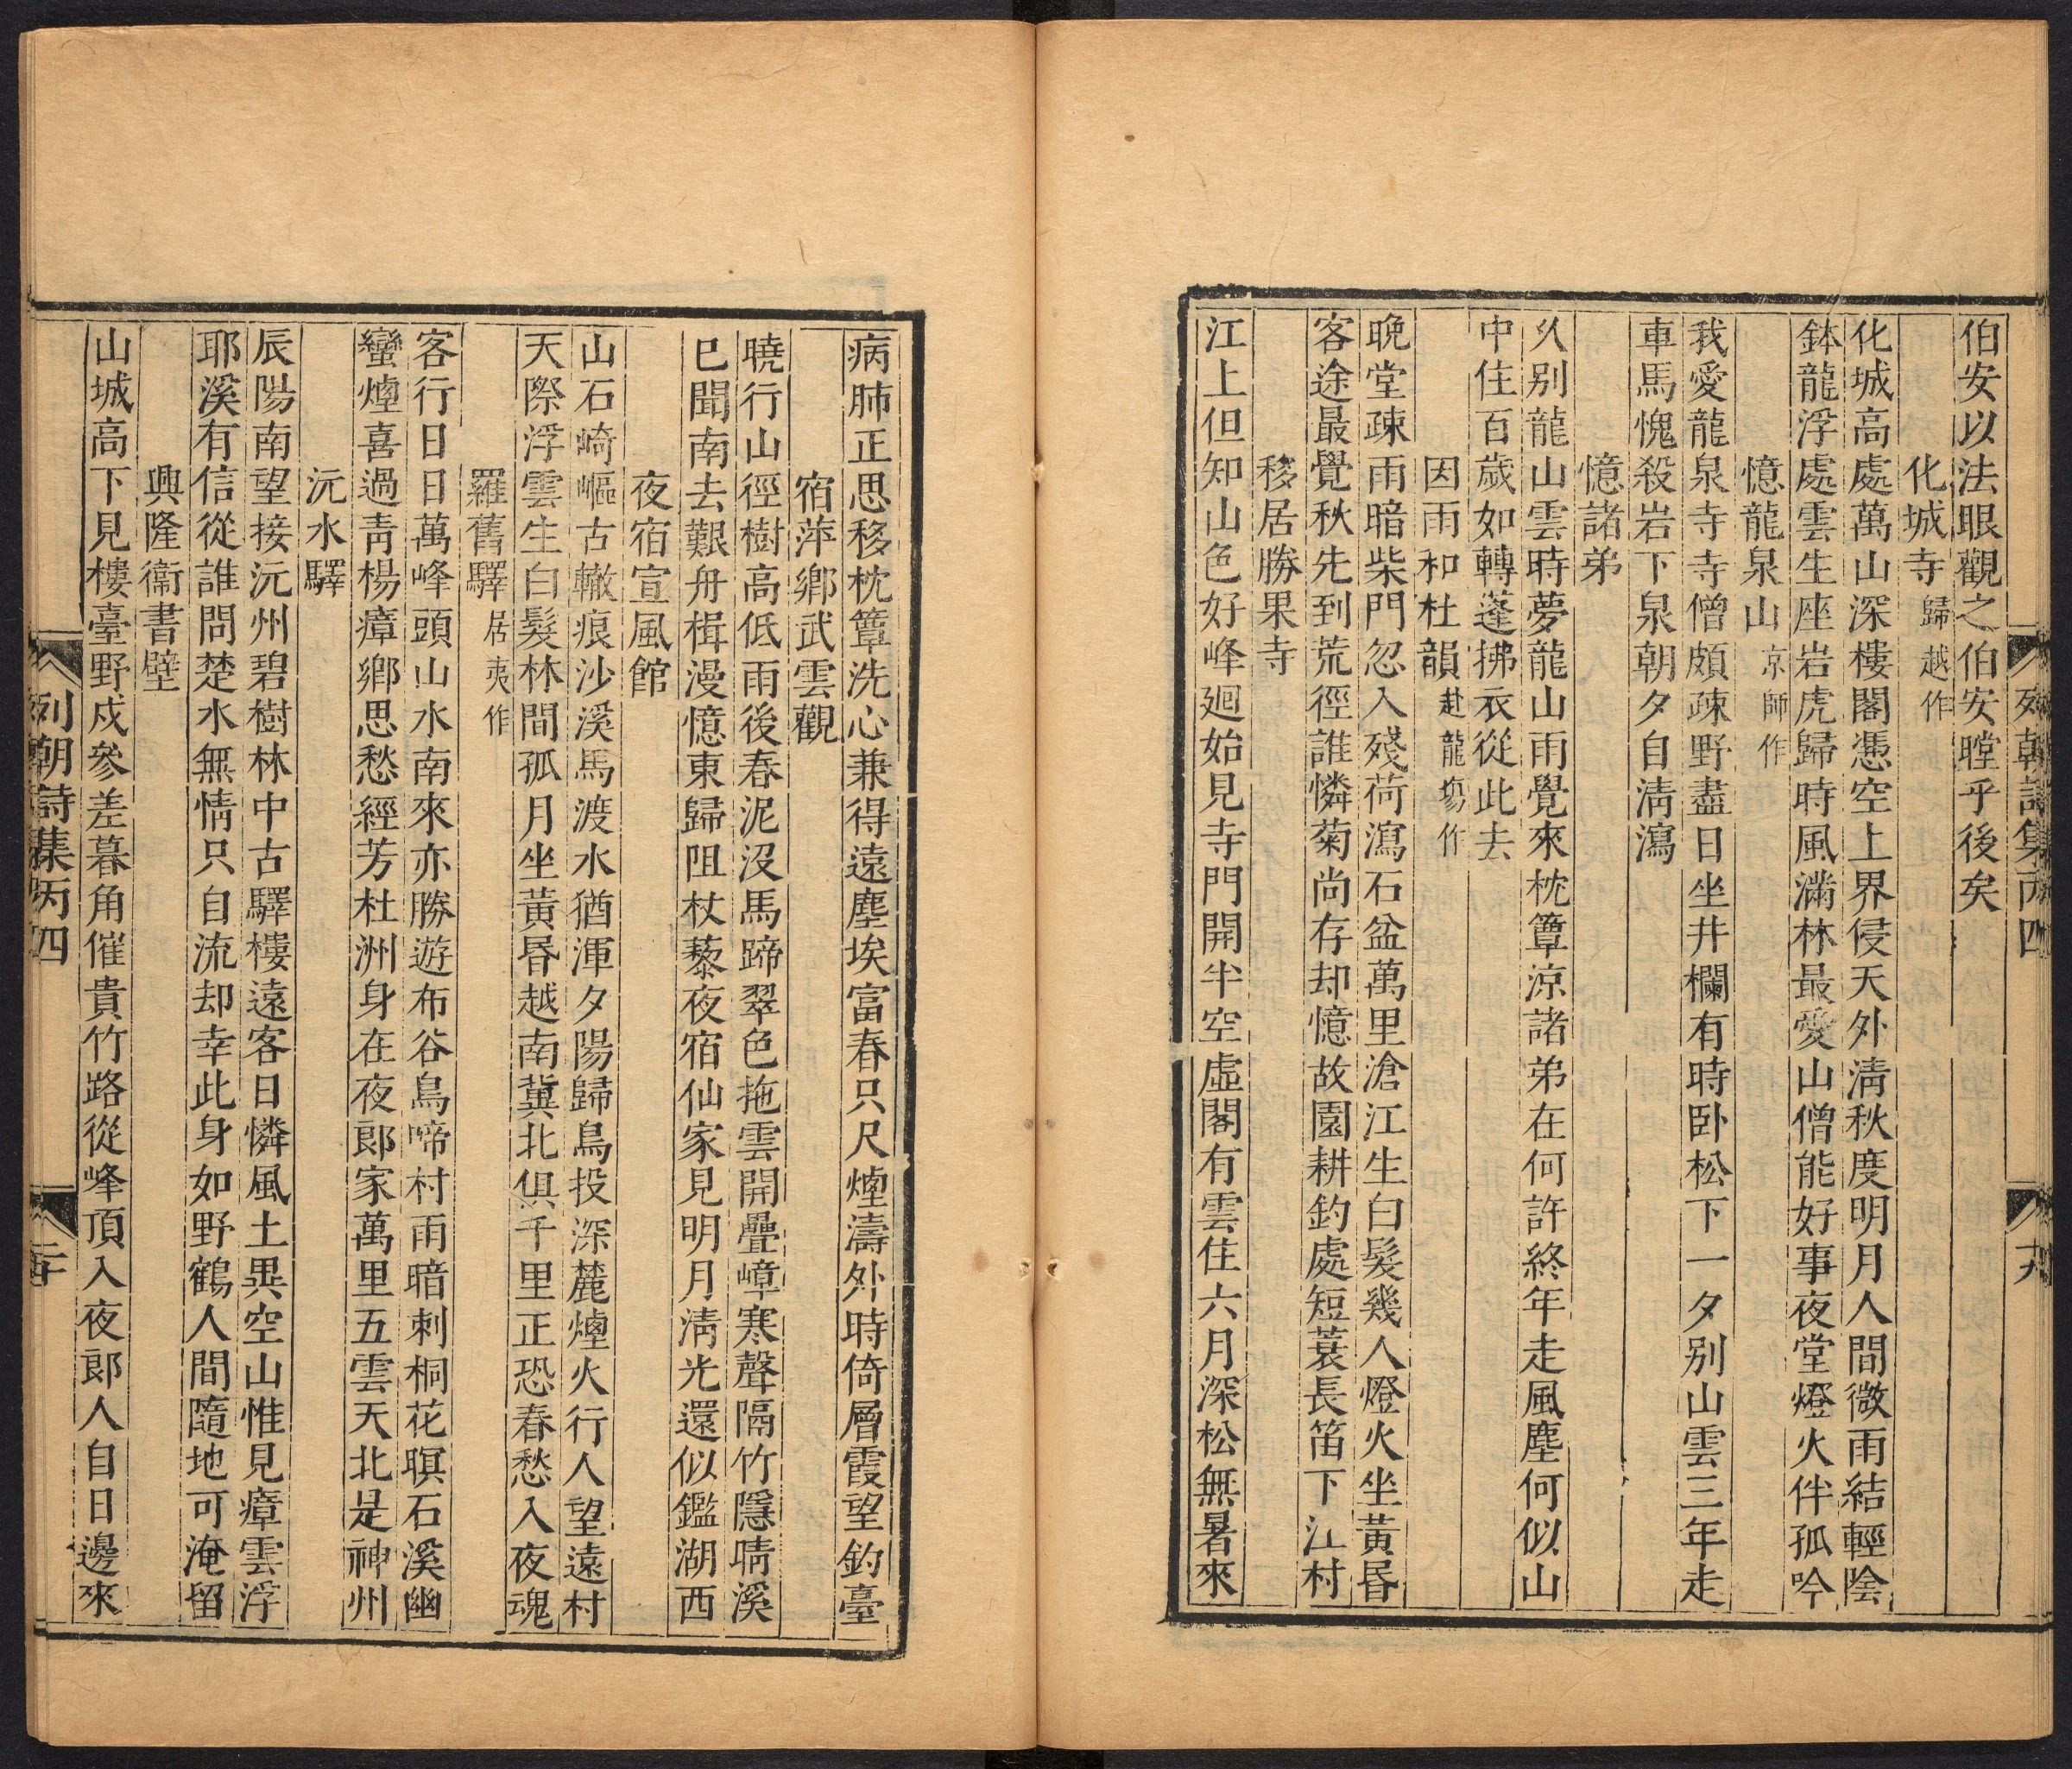 列朝詩集丙四
十九
伯安以法眼觀之伯安瞠乎後矣
化城寺歸越作
化城高處萬山深樓閣憑空上界侵天外清秋度明月人間微雨結輕陰
鉢龍浮處雲生座岩虎歸時風滿林最愛山僧能好事夜堂燈火伴孤吟
憶龍泉山京師作
我愛龍泉寺寺僧頗疎野盡日坐井欄有時卧松下一夕別山雲三年走
車馬愧殺岩下泉朝夕自清瀉
憶諸弟
久別龍山雲時夢龍山雨覺來枕簟涼諸弟在何許終年走風塵何似山
中住百歲如轉蓬拂衣從此去
因雨和杜韻赴龍塲作
晚堂疎雨暗柴門忽入殘荷瀉石盆萬里滄江生白髮幾人燈火坐黃昏
客途最覺秋先到荒徑誰憐菊尚存却憶故園耕釣處短蓑長笛下江村
移居勝果寺
江上但知山色好峰廻始見寺門開半空虛閣有雲住六月深松無暑來
病肺正思移枕簟洗心兼得遠塵埃富春只尺煙濤外時倚層霞望釣臺
宿萍鄉武雲觀
曉行山徑樹高低雨後春泥沒馬蹄翠色拖雲開疊嶂寒聲隔竹隱晴溪
已聞南去艱舟楫漫憶東歸阻杖藜夜宿仙家見明月清光還似鑑湖西
夜宿宣風館
山石崎嶇古轍痕沙溪馬渡水猶渾夕陽歸鳥投深麓煙火行人望遠村
天際浮雲生白髮林間孤月坐黃昏越南冀北俱千里正恐春愁入夜魂
羅舊驛居夷作
客行日日萬峰頭山水南來亦勝遊布谷鳥啼村雨暗刺桐花暝石溪幽
蠻煙喜過青楊瘴鄉思愁經芳杜洲身在夜郎家萬里五雲天北是神州
沅水驛
辰陽南望接沅州碧樹林中古驛樓遠客日憐風土異空山惟見瘴雲浮
耶溪有信從誰問楚水無情只自流却幸此身如野鶴人間隨地可淹留
興隆衞書壁
山城高下見樓臺野戍參差暮角催貴竹路從峰頂入夜郎人自日邊來
列朝詩集丙四
二十